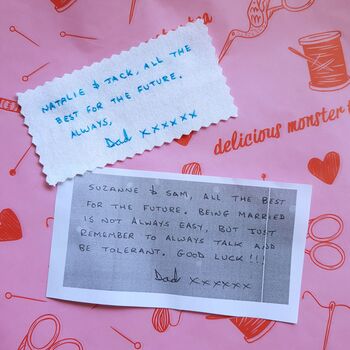 NATALIE & JACK, ALL THE
BEST FOR THE FUTURE.
ALWAYS,
Dad xxxxxx
delicious monster
SUZANNE & SAM, ALL THE BEST
FOR THE FUTURE. BEING MARRIED
IS NOT ALWAYS EASY, BUT JUST
REMEMBER TO ALWAYS TALK AND
BE TOLERANT. GOOD LUCK!!!
Dad xxxxxx